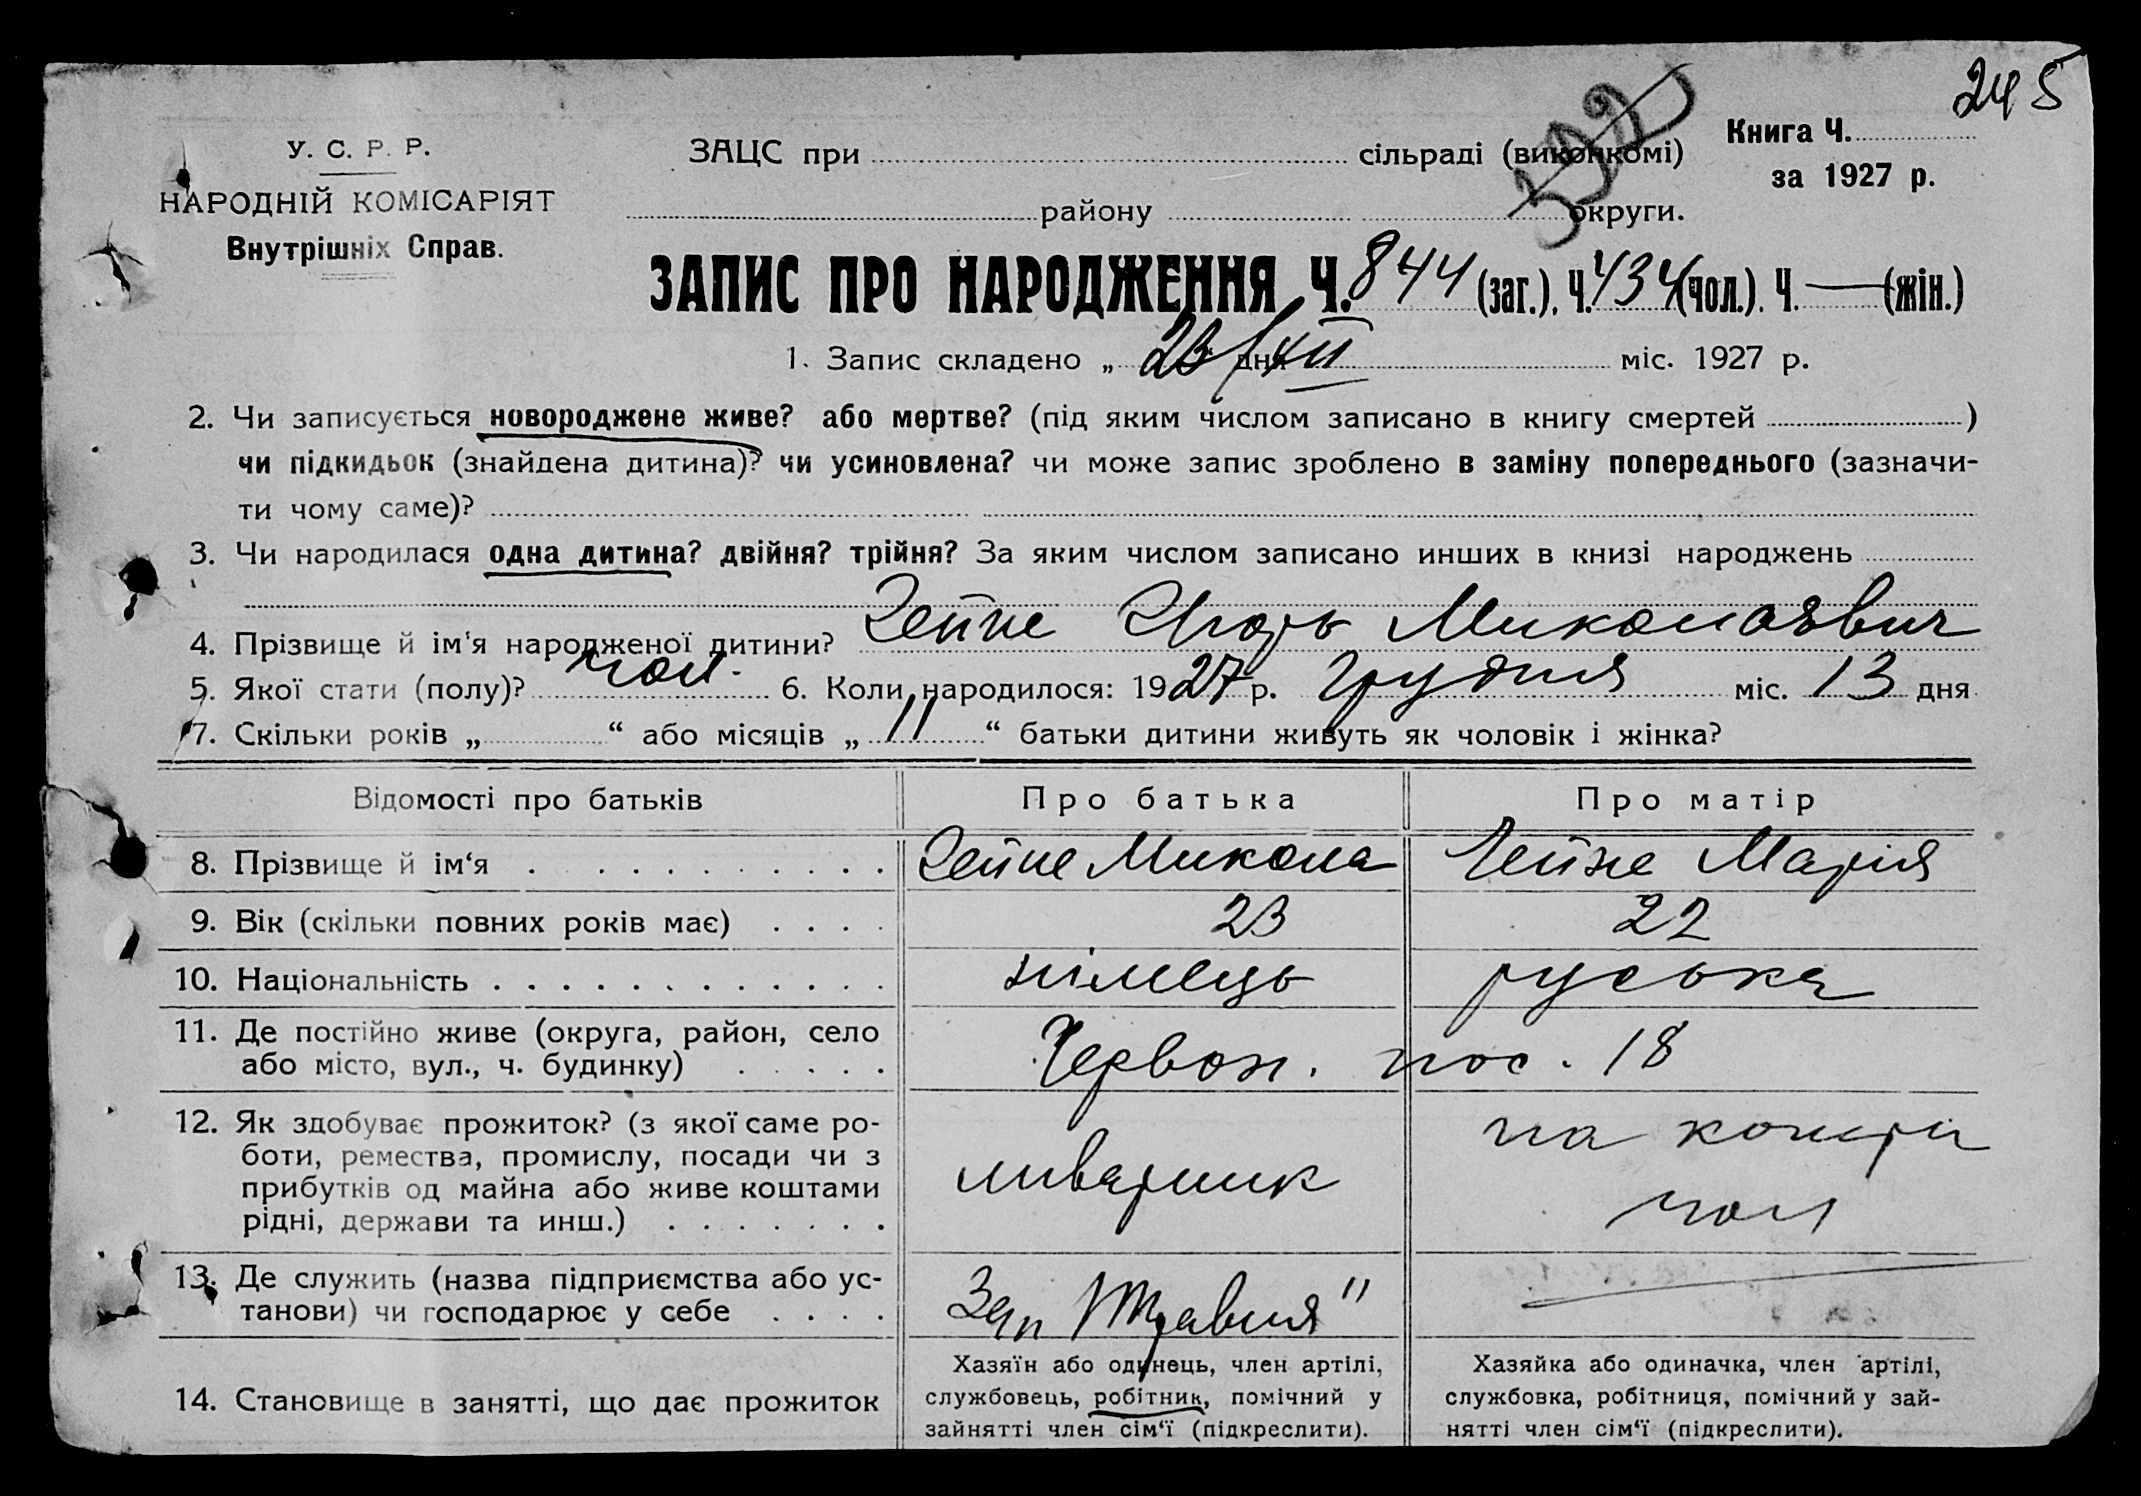 245
У. С. Р. Р.
НАРОДНІЙ КОМІСАРІЯТ
Внутрішніх Справ.
ЗАЦС при сільраді (виконкомі)
району округи.
Книга Ч.
за 1927 р.
ЗАПИС ПРО НАРОДЖЕННЯ Ч. 844 (заг.), Ч. 434 (чол.). Ч. — (жін.)
1. Запис складено „ 23/XII дня міс. 1927 р.
2. Чи записується новороджене живе? або мертве? (під яким числом записано в книгу смертей )
чи підкидьок (знайдена дитина)? чи усиновлена? чи може запис зроблено в заміну попереднього (зазначи-
ти чому саме)?
3. Чи народилася одна дитина? двійня? трійня? За яким числом записано инших в книзі народжень
4. Прізвище й ім'я народженої дитини? Гейне Игорь Миколаявич
5. Якої стати (полу)? чол. 6. Коли народилося: 1927 р. Грудня міс. 13 дня
7. Скільки років „ “ або місяців „ 11 “ батьки дитини живуть як чоловік і жінка?
Відомості про батьків Про батька Про матір
8. Прізвище й ім‘я Гейне Микола Гейне Марія
9. Вік (скільки повних років має) 23 22
10. Національність німець руська
11. Де постійно живе (округа, район, село
або місто, вул., ч. будинку) Червон. пос. 18
12. Як здобуває прожиток? (з якої саме ро-
боти, ремества, промислу, посади чи з
прибутків од майна або живе коштами
рідні, держави та инш.)
ливарник
на кошти
чол
13. Де служить (назва підприємства або ус-
танови) чи господарює у себе
Зав 1 Травня"
14. Становище в занятті, що дає прожиток
Хазяїн або одинець, член артілі,
службовець, робітник, помічний у
зайнятті член сім‘ї (підкреслити).
Хазяйка або одиначка, член артілі,
службовка, робітниця, помічний у зай-
нятті член сім‘ї (підкреслити).